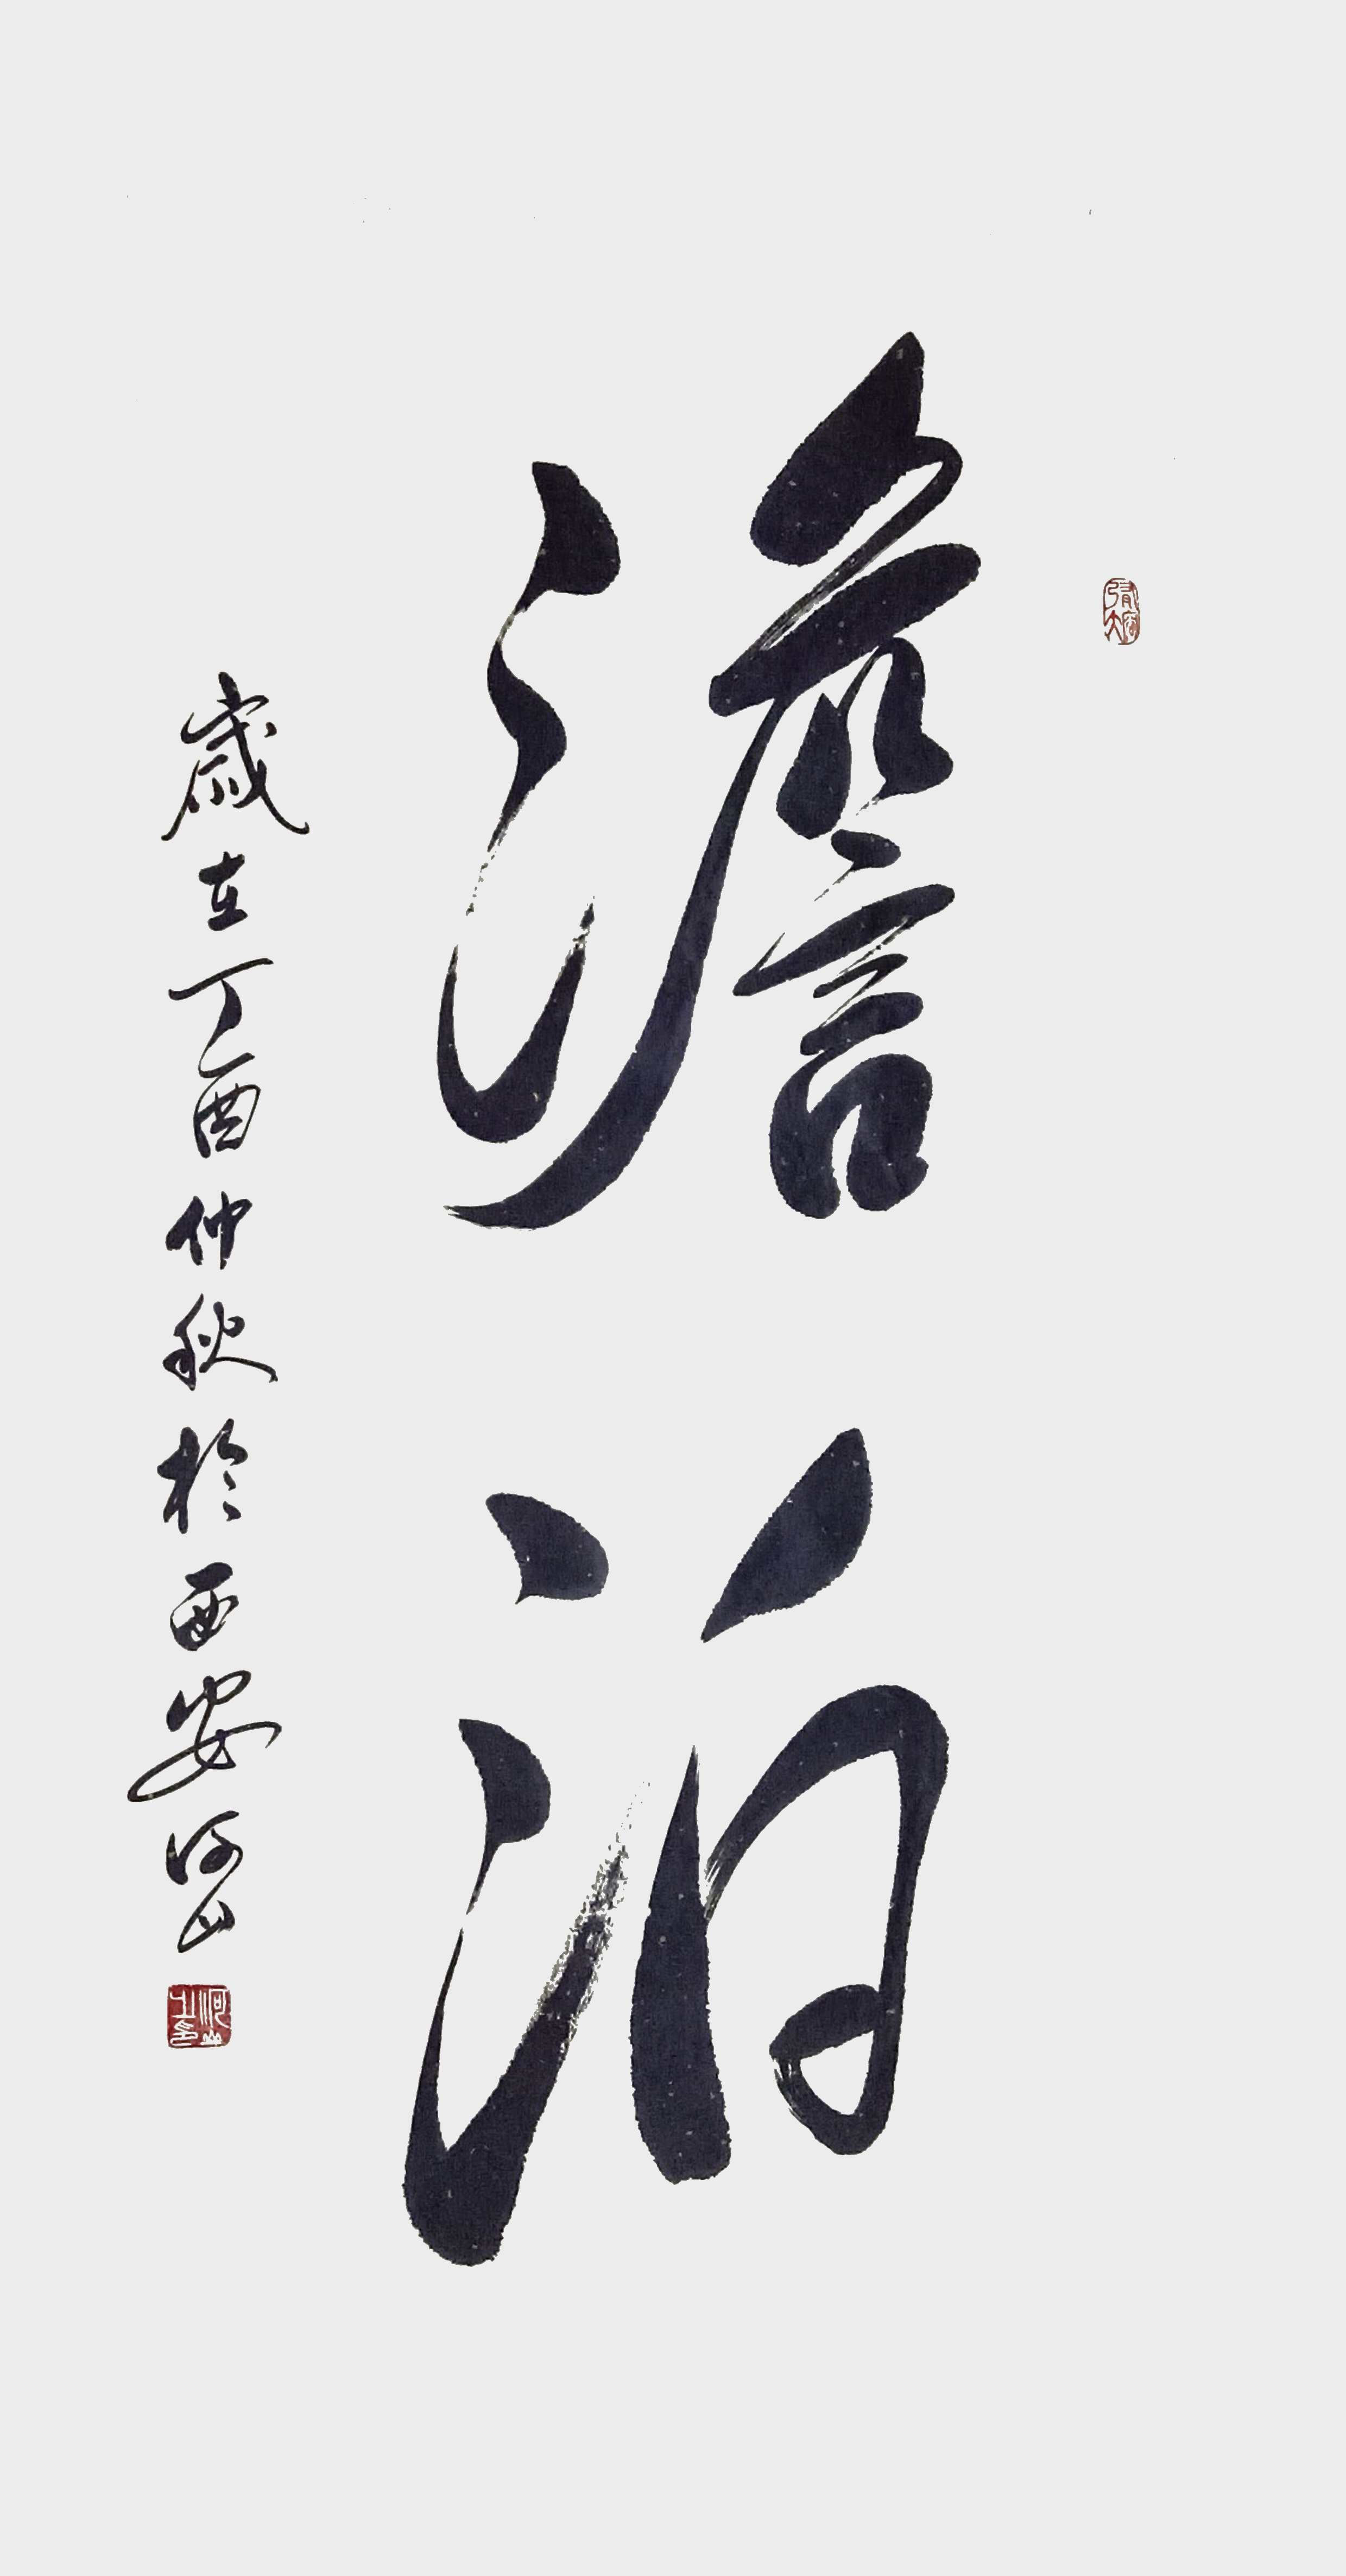 澹泊
歲在丁酉仲秋於西安河山